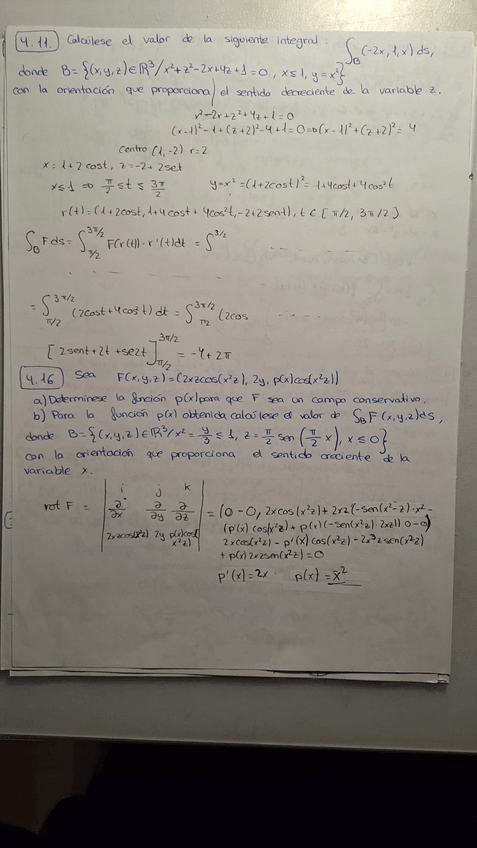 4.11. Calcúlese el valor de la siguiente integral: ∫_B (-2x, 1, x) ds,
donde B = {(x,y,z) ∈ ℝ³ / x²+z²-2x+4z+1=0, x≤1, y=x²}
con la orientación que proporciona el sentido decreciente de la variable z.
x²-2x+z²+4z+1=0
(x-1)²-1+(z+2)²-4+1=0 => (x-1)²+(z+2)²=4
centro (1,-2) r=2
x=1+2cost, z=-2+2set
x≤1 => π/2 ≤ t ≤ 3π/2 y=x²=(1+2cost)²=1+4cost+4cos²t
r(t)=(1+2cost, 1+4cost+4cos²t, -2+2sent), t ∈ [π/2, 3π/2]
∫_B F ds = ∫_{π/2}^{3π/2} F(r(t))·r'(t)dt = ∫^{3/2}
= ∫_{π/2}^{3π/2} (2cost+4cos²t) dt = ∫_{π/2}^{3π/2} (2cos
[2sent+2t+se2t]_{π/2}^{3π/2} = -4+2π
4.16 Sea F(x,y,z)=(2xzcos(x²z), 2y, p(x)cos(x²z))
a) Determínese la función p(x) para que F sea un campo conservativo.
b) Para la función p(x) obtenida calcúlese el valor de ∫_B F(x,y,z)ds,
donde B={(x,y,z)∈ℝ³/x²=y/3≤1, z=π/2 sen(π/2 x), x≤0}
con la orientación que proporciona el sentido creciente de la
variable x.
i j k
rot F = | ∂/∂x ∂/∂y ∂/∂z | = (0-0, 2xcos(x²z)+2xz(-sen(x²-z)·x²-
(p'(x)cos(x²z)+p(x)(-sen(x²z)·2xz)) 0-0)
2xzcos(x²z) 2y p(x)cos(x²z)
2xcos(x²z)-p'(x)cos(x²z)-2x³zsen(x²z)
+p(x)2xzsen(x²z)=0
p'(x)=2x p(x)=x²